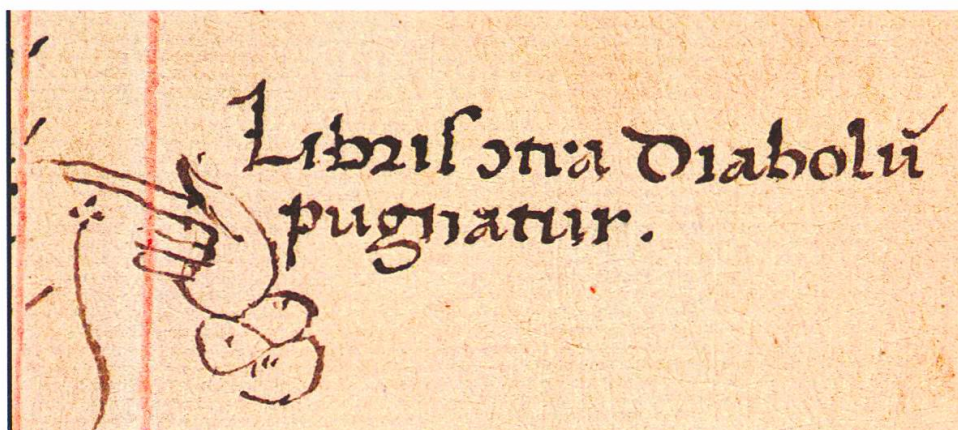 Libris ↄtra Diabolū
pugnatur.